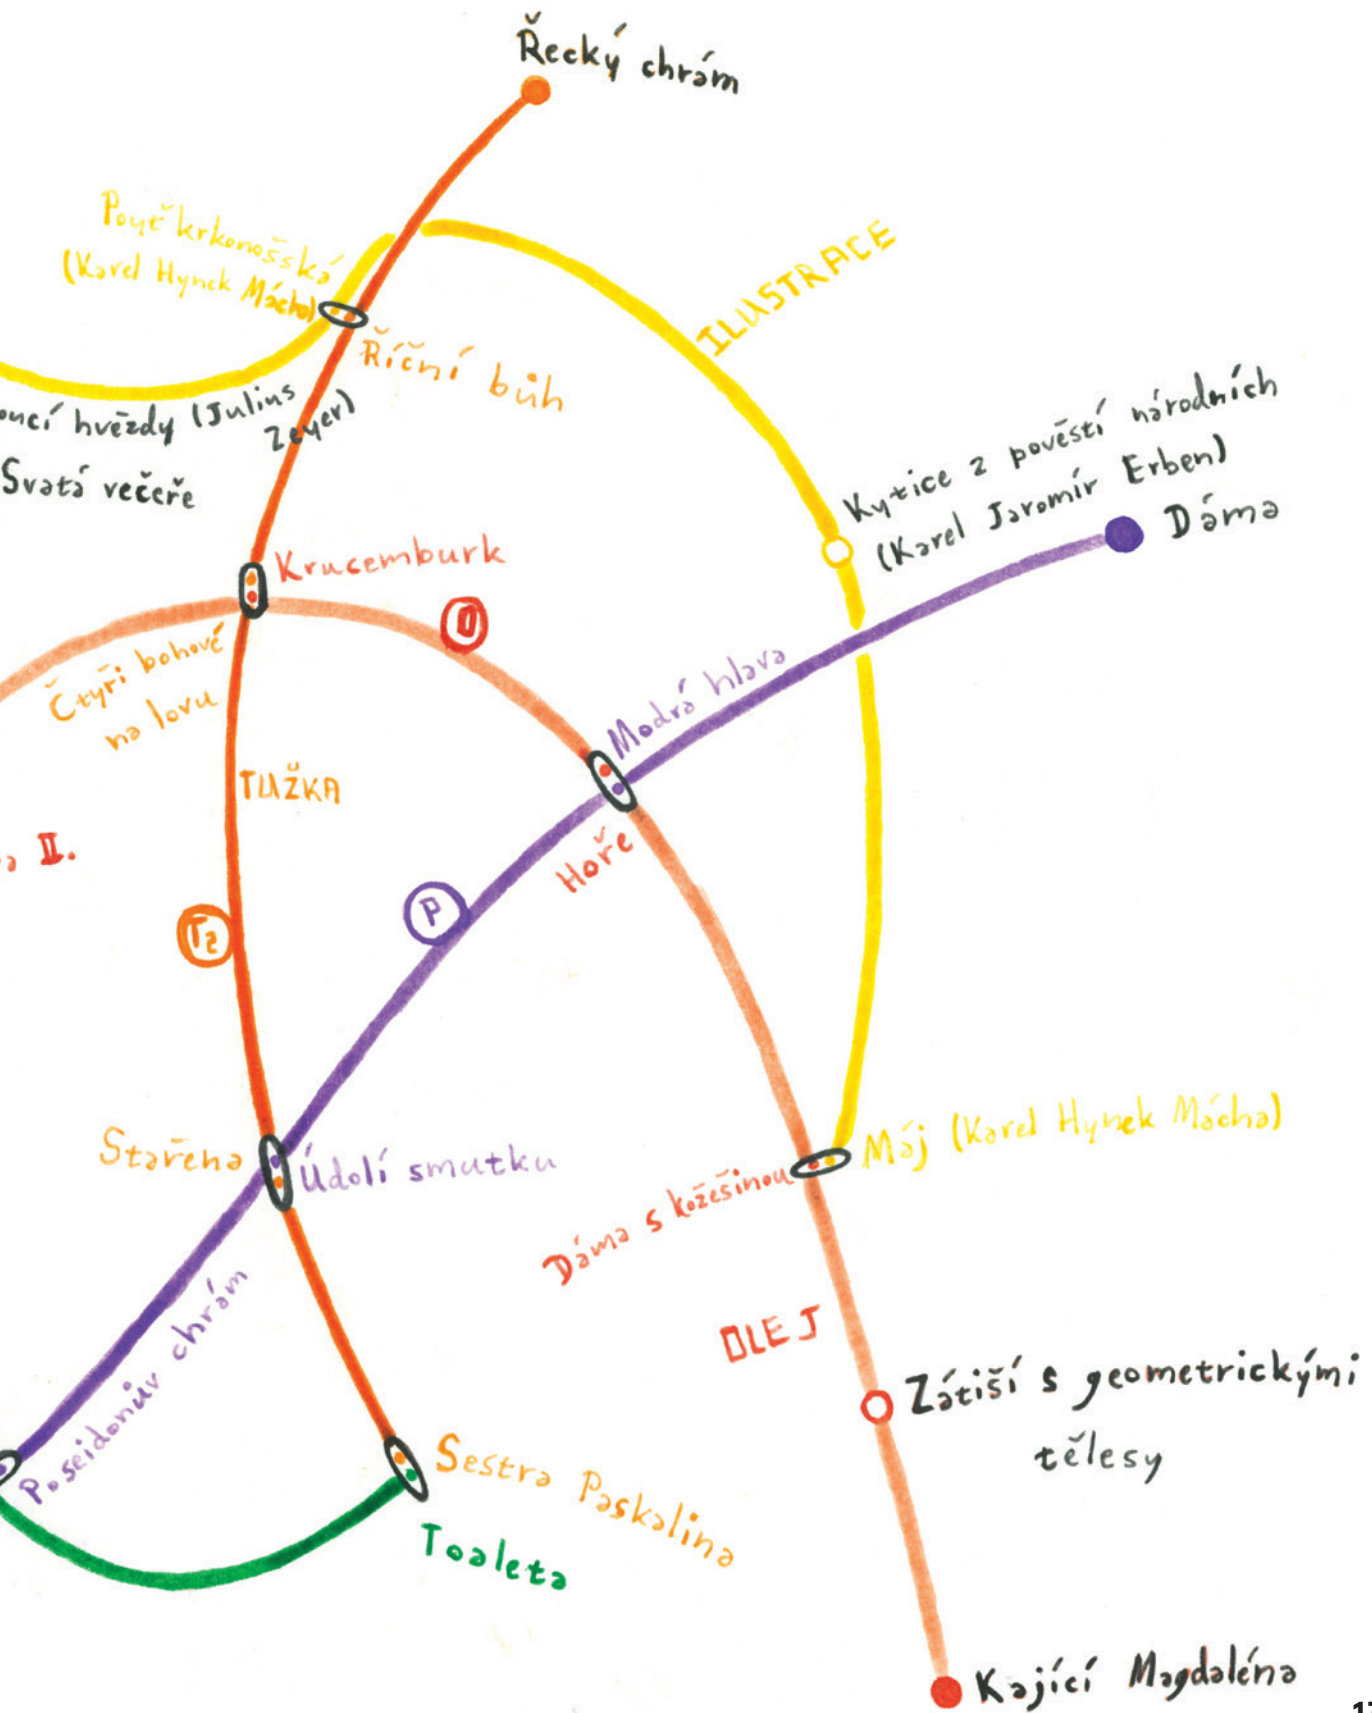 Řecký chrám
Pouť krkonošská
(Karel Hynek Mácha)
ILUSTRACE
Říční bůh
hvězdy (Julius
Zeyer)
Svatá večeře
Kytice z pověstí národních
(Karel Jaromír Erben)
Dáma
Krucemburk
O
Čtyři bohové
na lovu
Modrá hlava
TUŽKA
II.
Hoře
P
T2
Stařena
Údolí smutku
Máj (Karel Hynek Mácha)
Dáma s kožešinou
OLEJ
Poseidonův chrám
Zátiší s geometrickými
tělesy
Sestra Paskalina
Toaleta
Kající Magdaléna
17